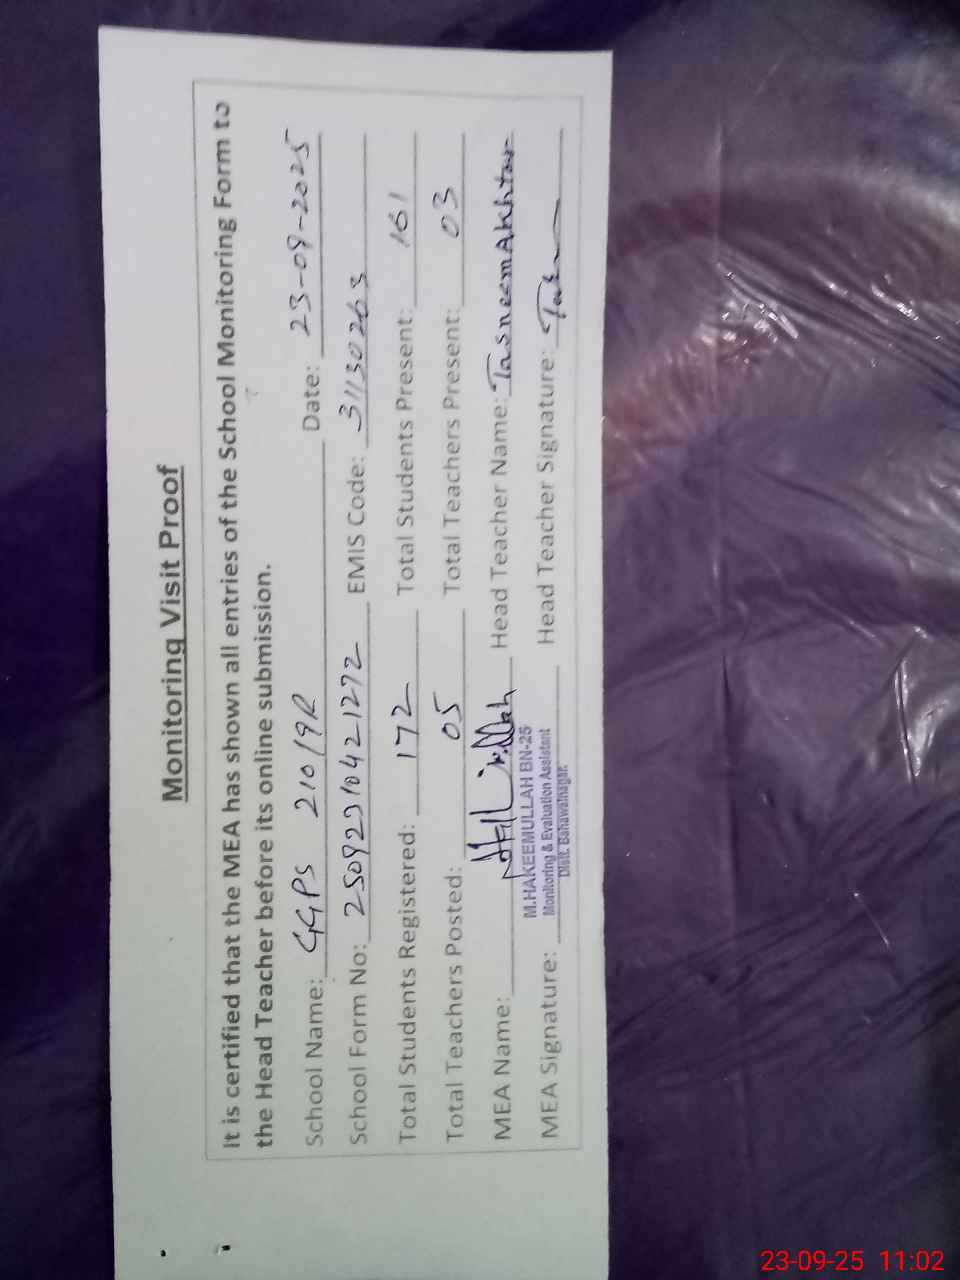 Monitoring Visit Proof
It is certified that the MEA has shown all entries of the School Monitoring Form to
the Head Teacher before its online submission.
School Name: GGPS 210/9R Date: 23-09-2025
School Form No: 25092310421272 EMIS Code: 31130263
Total Students Registered: 172 Total Students Present: 161
Total Teachers Posted: 05 Total Teachers Present: 03
MEA Name: Head Teacher Name: Tasneem Akhtar
M.HAKEEMULLAH BN-25
MEA Signature: Monitoring & Evaluation Assistant Head Teacher Signature:
Distt. Bahawalnagar.
23-09-25 11:02